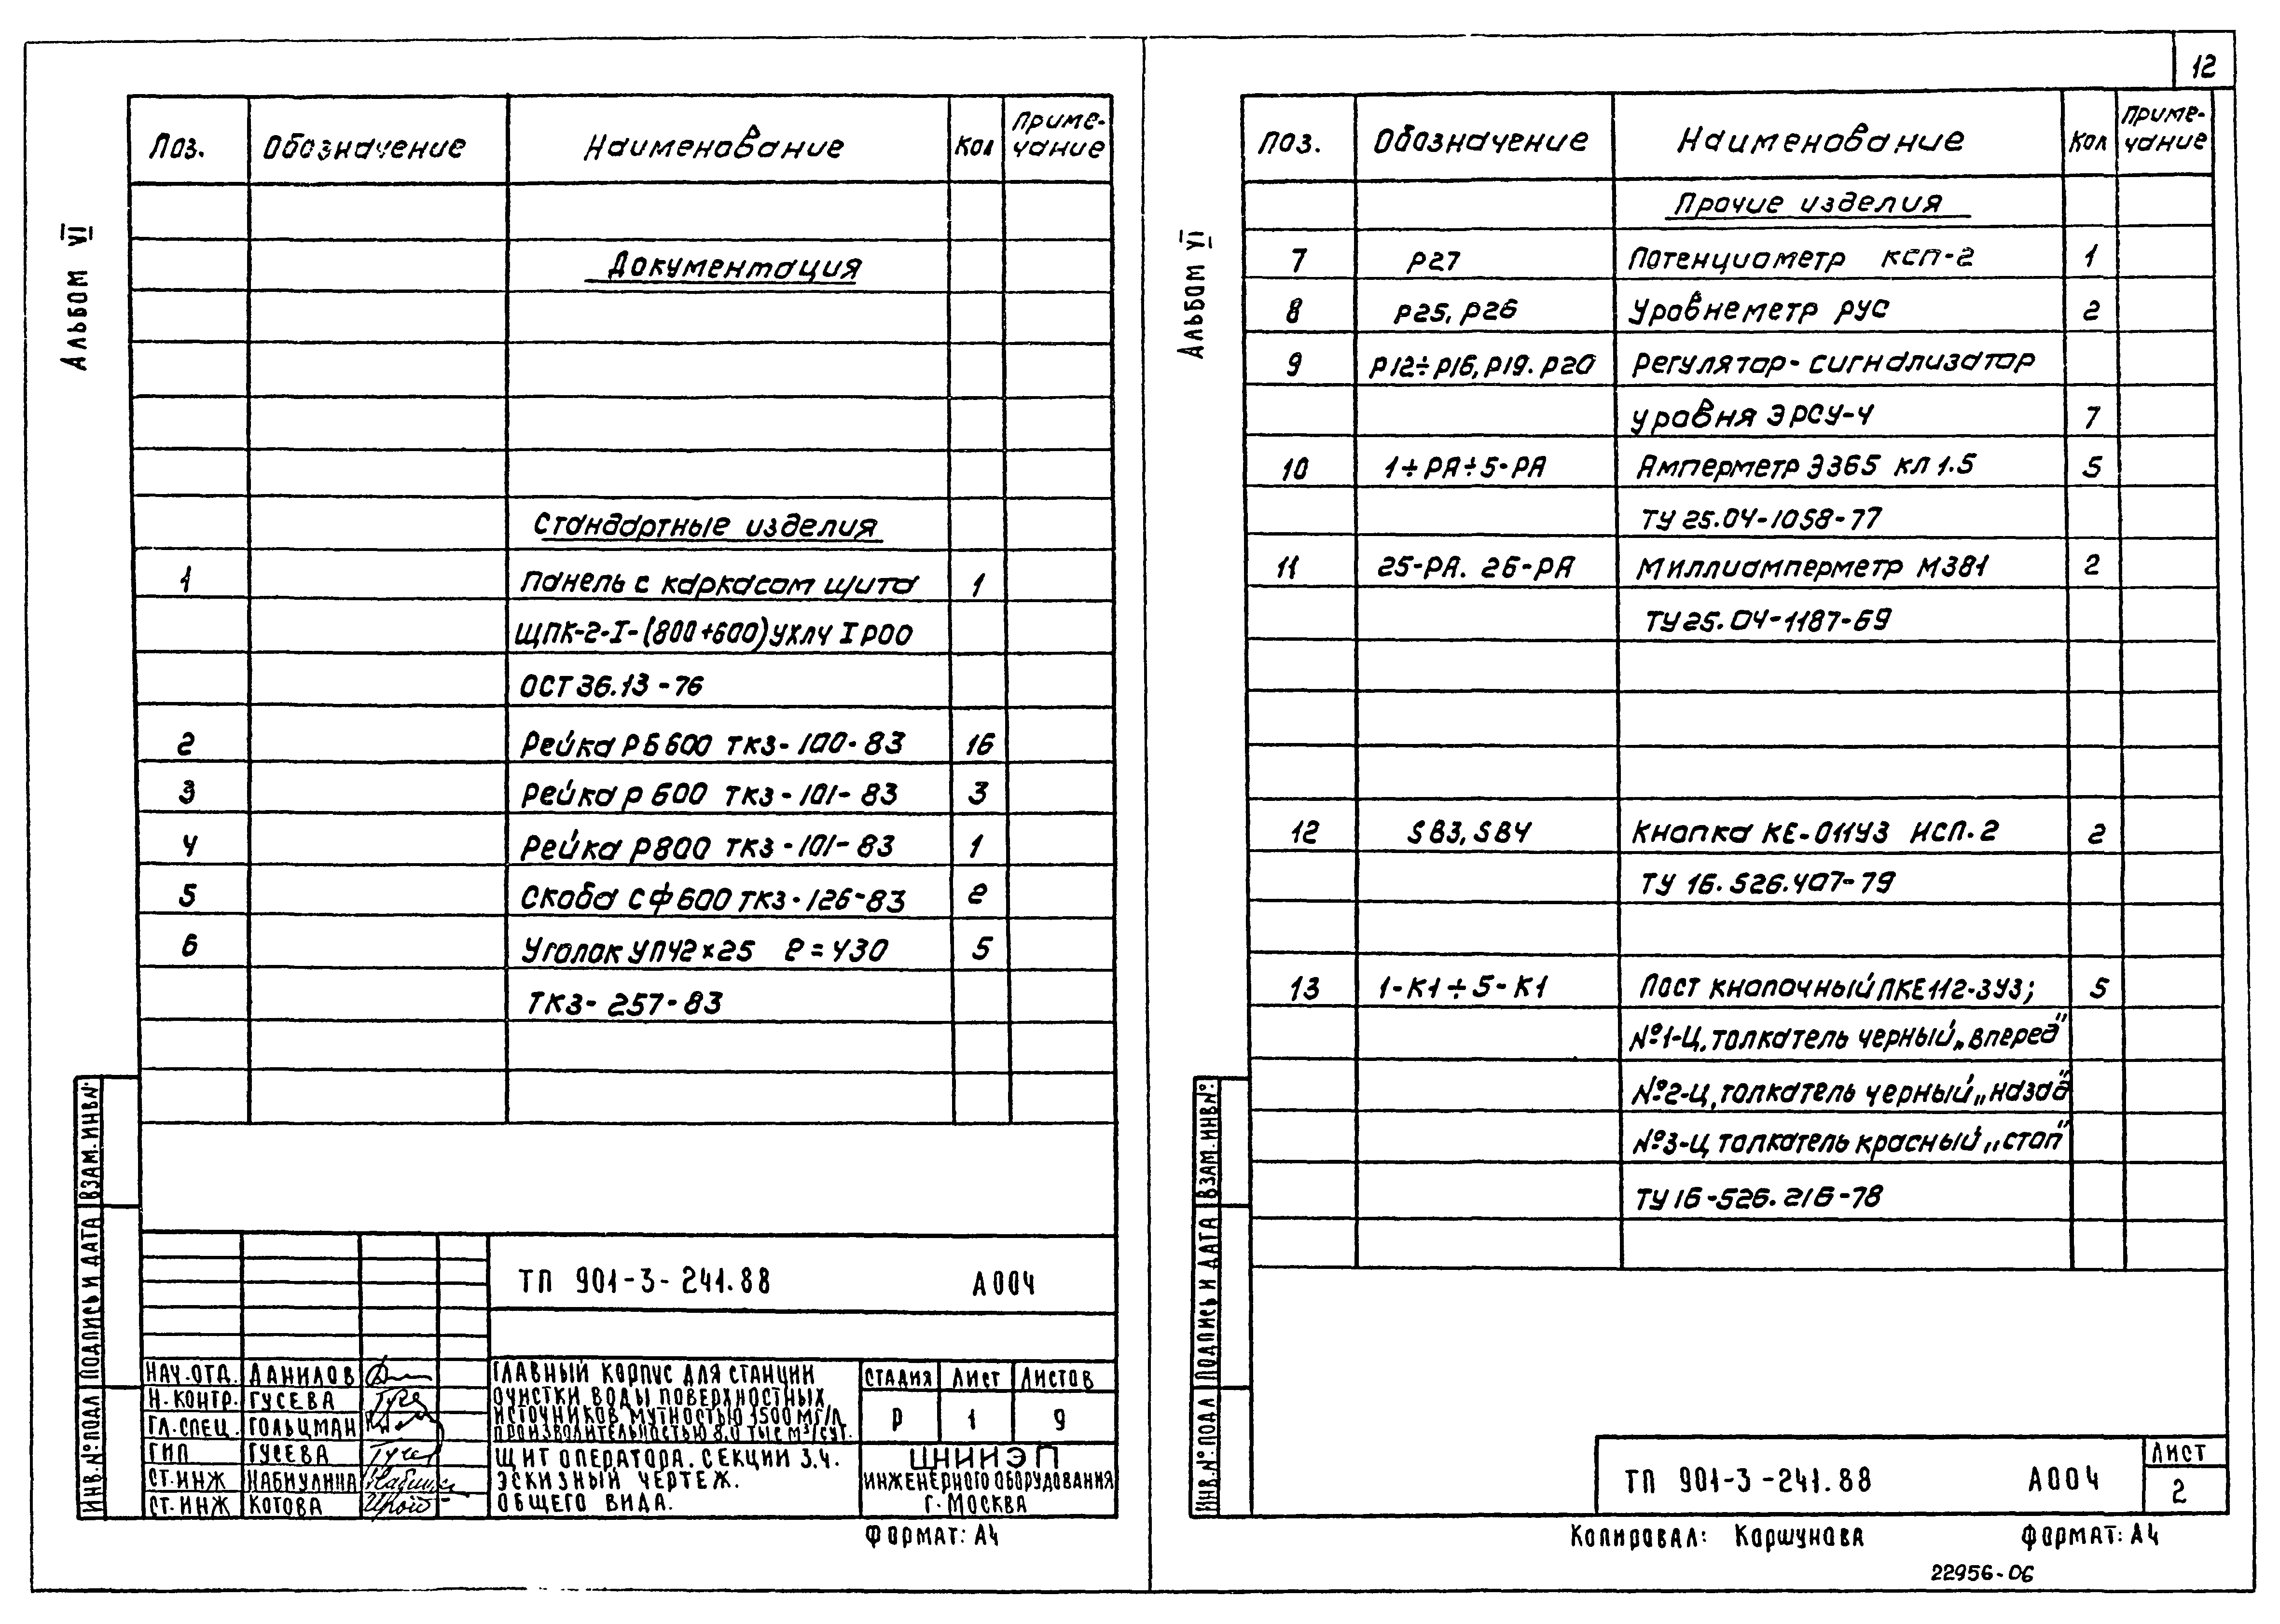 12
Альбом VI
Поз. Обозначение Наименование Кол Приме-
чание
Документация
Стандартные изделия
1 Панель с каркасом щита 1
ЩПК-2-I-(800+600)УХЛ4 IP00
ОСТ 36.13-76
2 Рейка РБ600 ТКЗ-100-83 16
3 Рейка Р600 ТКЗ-101-83 3
4 Рейка Р800 ТКЗ-101-83 1
5 Скоба СФ600 ТКЗ-126-83 2
6 Уголок УП42х25 ℓ=430 5
ТКЗ-257-83
ТП 901-3-241.88 А004
НАЧ.ОТД. ДАНИЛОВ
Н.КОНТР. ГУСЕВА
ГЛ.СПЕЦ. ГОЛЬЦМАН
ГИП ГУСЕВА
СТ.ИНЖ НАБИУЛИНА
СТ.ИНЖ КОТОВА
ГЛАВНЫЙ КОРПУС ДЛЯ СТАНЦИИ
ОЧИСТКИ ВОДЫ ПОВЕРХНОСТНЫХ
ИСТОЧНИКОВ МУТНОСТЬЮ 1500 МГ/Л
ПРОИЗВОДИТЕЛЬНОСТЬЮ 8,0 ТЫС М³/СУТ.
ЩИТ ОПЕРАТОРА. СЕКЦИИ 3.4.
ЭСКИЗНЫЙ ЧЕРТЕЖ.
ОБЩЕГО ВИДА.
СТАДИЯ ЛИСТ ЛИСТОВ
Р 1 9
ЦНИИЭП
ИНЖЕНЕРНОГО ОБОРУДОВАНИЯ
Г. МОСКВА
ФОРМАТ: А4
ИНВ.№ПОДЛ ПОДПИСЬ И ДАТА ВЗАМ.ИНВ№
Альбом VI
Поз. Обозначение Наименование Кол Приме-
чание
Прочие изделия
7 Р27 Потенциометр КСП-2 1
8 Р25, Р26 Уровнеметр РУС 2
9 Р12÷Р16, Р19. Р20 Регулятор-сигнализатор
уровня ЭРСУ-4 7
10 1÷РА÷5-РА Амперметр Э365 кл 1.5 5
ТУ 25.04-1058-77
11 25-РА. 26-РА Миллиамперметр М381 2
ТУ 25.04-1187-69
12 SВ3, SВ4 Кнопка КЕ-011У3 исп.2 2
ТУ 16.526.407-79
13 1-К1÷5-К1 Пост кнопочный ПКЕ112-3У3; 5
№1-Ц, толкатель черный „вперед"
№2-Ц, толкатель черный „назад"
№3-Ц толкатель красный „стоп"
ТУ 16-526.216-78
ТП 901-3-241.88 А004
ЛИСТ
2
ИНВ.№ПОДЛ ПОДПИСЬ И ДАТА ВЗАМ.ИНВ№:
Копировал: Коршунова ФОРМАТ: А4
22956-06